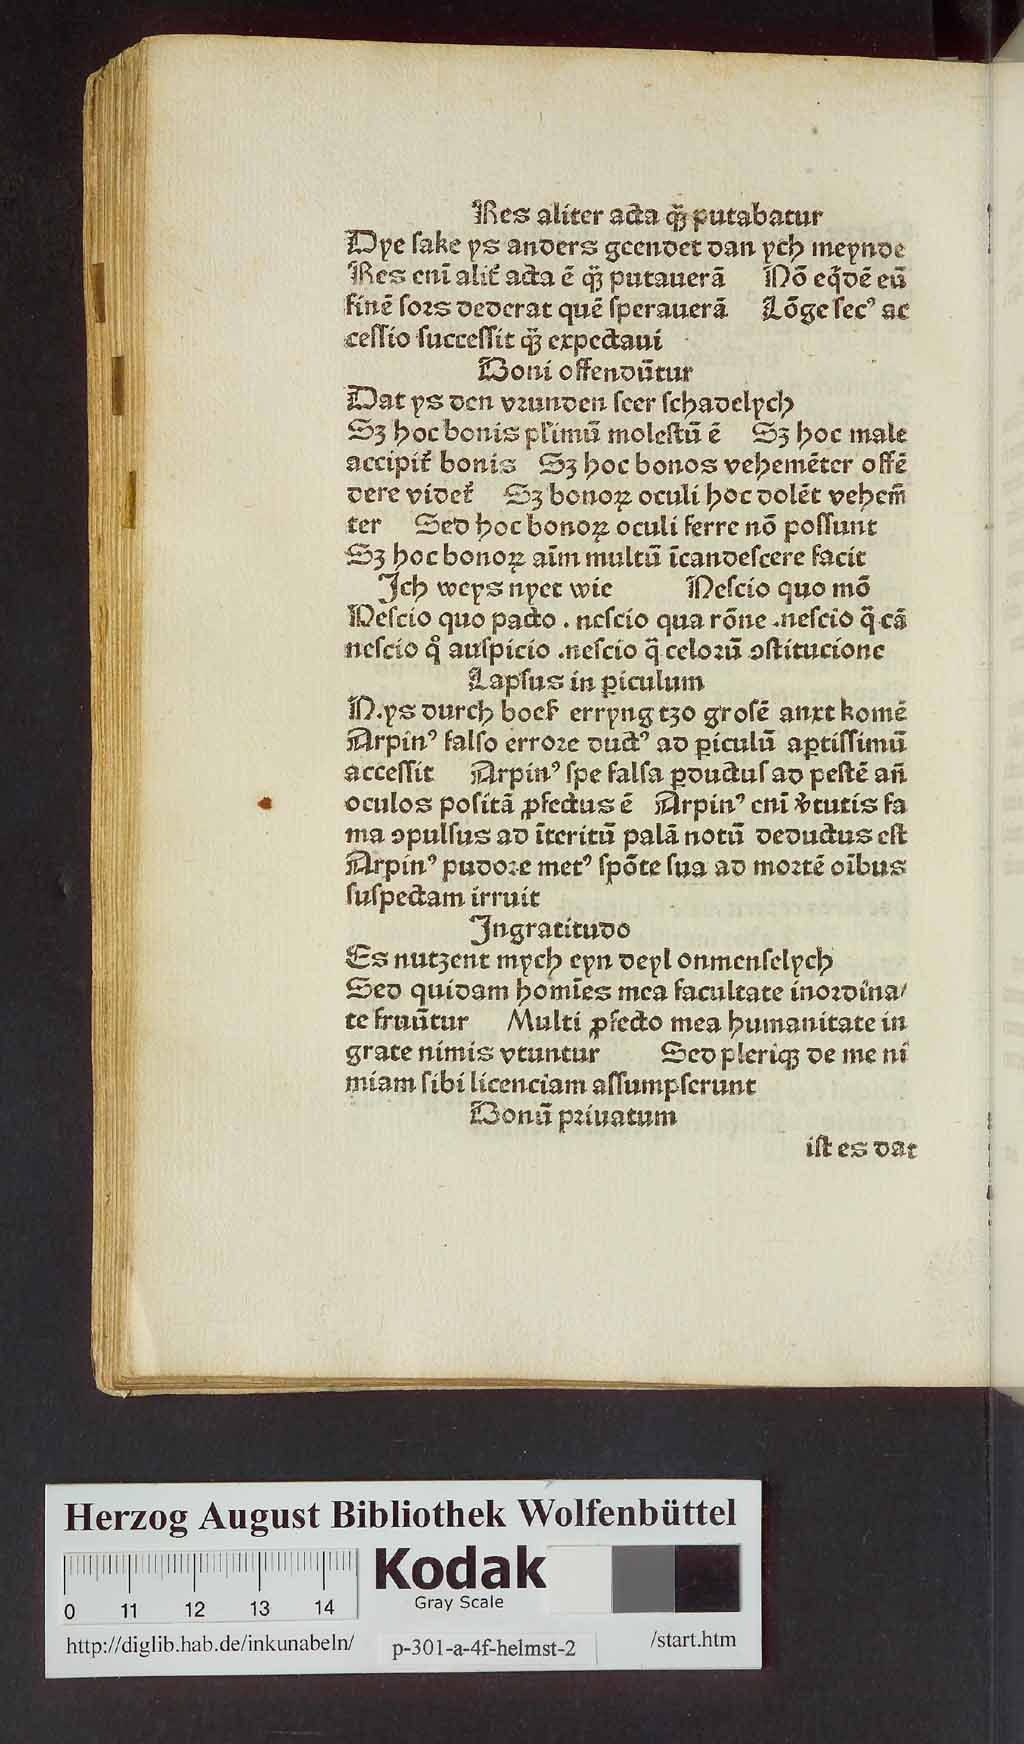 Res aliter acta q̄ꝫ putabatur
Dye ſake ys anders geendet dan ych meynde
Res eni̅ alit̛ acta ē q̄ꝫ putauerā Nō eq̛dē eū
finē ſors dederat quē ſperauerā Lōge ſecꝰ ac
ceſſio ſucceſſit q̄ꝫ expectaui
Boni offendūtur
Dat ys den vrunden ſeer ſchadelych
Sꝫ hoc bonis pl̛imū moleſtū ē Sꝫ hoc male
accipit̛ bonis Sꝫ hoc bonos vehemēter offē
dere videt̛ Sꝫ bonoꝝ oculi hoc dolēt vehem̄
ter Sed hoc bonoꝝ oculi ferre nō poſſunt
Sꝫ hoc bonoꝝ ai̅m multū i̅candeſcere facit
Ich weys nyet wie Neſcio quo mō
Neſcio quo pacto . neſcio qua rōne .neſcio q̄ cā
neſcio qͦ auſpicio .neſcio q̄ celorū ꝯſtitucione
Lapſus in ꝑiculum
N.ys durch boeſ̛ erryng tzo groſē anxt komē
Arpinꝰ falſo errore ductꝰ ad ꝑiculū aꝑtiſſimū
acceſſit Arpinꝰ ſpe falſa ꝑductuſ ad peſtē an̄
oculos poſitā ꝓfectus ē Arpinꝰ eni̅ v̛tutis fa
ma ꝯpulſus ad i̅teritū palā notū deductus eſt
Arpinꝰ pudore metꝰ ſpōte ſua ad mortē oi̅bus
ſuſpectam irruit
Ingratitudo
Es nutzent mych eyn deyl onmenſelych
Sed quidam homi̅es mea facultate inordi̅na/
te fruūtur Multi ꝓfecto mea humanitate in
grate nimis vtuntur Sed pleriqꝫ de me ni
miam ſibi licenciam aſſumpſerunt
Bonū priuatum
iſt es dat
Herzog August Bibliothek Wolfenbüttel
Kodak
Gray Scale
0 11 12 13 14
http://diglib.hab.de/inkunabeln/ p-301-a-4f-helmst-2 /start.htm